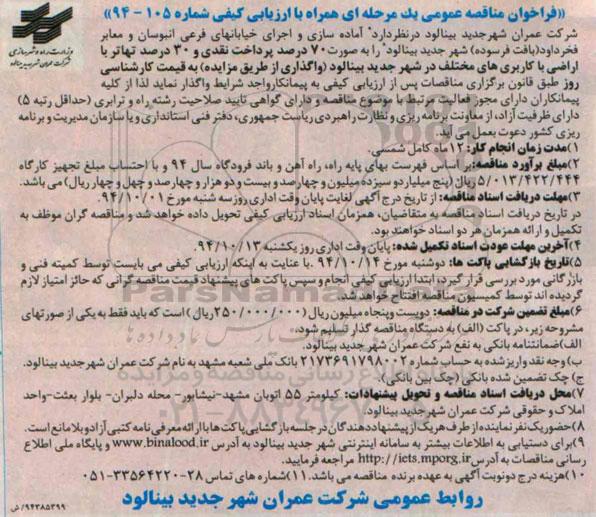 «فراخوان مناقصه عمومی یك مرحله ای همراه با ارزیابی کیفی شماره ۱۰۵ - ۹۴»
وزارت راه و شهرسازی
شرکت عمران شهر جدید بینالود
شرکت عمران شهرجدید بینالود درنظردارد" آماده سازی و اجرای خیابانهای فرعی انبوسان و معابر
فخرداود(بافت فرسوده) شهر جدید بینالود" را به صورت ۷۰ درصد پرداخت نقدی و ۳۰ درصد تهاتر با
اراضی با کاربری های مختلف در شهر جدید بینالود (واگذاری از طریق مزایده) به قیمت کارشناسی
روز طبق قانون برگزاری مناقصات پس از ارزیابی کیفی به پیمانکارواجد شرایط واگذار نماید لذا از کلیه
پیمانکاران دارای مجوز فعالیت مرتبط با موضوع مناقصه و دارای گواهی تایید صلاحیت رشته راه و ترابری (حداقل رتبه ۵)
دارای ظرفیت آزاد، از معاونت برنامه ریزی و نظارت راهبردی ریاست جمهوری، دفتر فنی استانداری و یا سازمان مدیریت و برنامه
ریزی کشور دعوت بعمل می آید.
۱)مدت زمان انجام کار: ۱۲ ماه کامل شمسی.
۲)مبلغ برآورد مناقصه: بر اساس فهرست بهای پایه راه، راه آهن و باند فرودگاه سال ۹۴ و با احتساب مبلغ تجهیز کارگاه
۵/۰۱۳/۴۲۲/۴۴۴ ریال (پنج میلیارد و سیزده میلیون و چهارصد و بیست و دو هزار و چهارصد و چهل و چهار ریال) می باشد.
۳)مهلت دریافت اسناد مناقصه: از تاریخ درج آگهی لغایت پایان وقت اداری روز سه شنبه مورخ ۹۴/۱۰/۰۱.
در تاریخ دریافت اسناد مناقصه به متقاضیان، همزمان اسناد ارزیابی کیفی تحویل داده خواهد شد و مناقصه گران موظف به
تکمیل و ارائه همزمان هر دو اسناد خواهند بود.
۴)آخرین مهلت عودت اسناد تکمیل شده: پایان وقت اداری روز یکشنبه ۹۴/۱۰/۱۳.
۵)تاریخ بازگشایی پاکت ها: دوشنبه مورخ ۹۴/۱۰/۱۴ .با عنایت به اینکه ارزیابی کیفی می بایست توسط کمیته فنی و
بازرگانی مورد بررسی قرار گیرد، ابتدا ارزیابی کیفی انجام و سپس پاکت های پیشنهاد قیمت مناقصه گرانی که حائز امتیاز لازم
گردیده اند توسط کمیسیون مناقصه افتتاح خواهد شد.
۶)مبلغ تضمین شرکت در مناقصه: دویست وپنجاه میلیون ریال (۲۵۰/۰۰۰/۰۰۰ریال) است که باید فقط به یکی از صورتهای
مشروحه زیر، در پاکت (الف) به دستگاه مناقصه گذار تسلیم شود.
الف)ضمانتنامه بانکی به نفع شرکت عمران شهر جدید بینالود.
ب)وجه نقد واریز شده به حساب شماره ۲۱۷۳۶۹۱۷۹۸۰۰۲ بانک ملی شعبه مشهد به نام شرکت عمران شهر جدید بینالود.
ج) چک تضمین شده بانکی (چک بین بانکی).
۷)محل دریافت اسناد مناقصه و تحویل پیشنهادات: کیلومتر ۵۵ اتوبان مشهد-نیشابور- محله دلبران- بلوار بعثت-واحد
املاک و حقوقی شرکت عمران شهر جدید بینالود.
۸)حضور یک نفر نماینده از طرف هر یک از پیشنهاد دهندگان در جلسه بازگشایی پاکت ها با ارائه معرفی نامه کتبی آزاد و بلامانع است.
۹)برای دستیابی به اطلاعات بیشتر به سامانه اینترنتی شهر جدید بینالود به آدرس www.binalood.ir و پایگاه ملی اطلاع
رسانی مناقصات به آدرس http://iets.mporg.ir مراجعه فرمایید.
۱۰)هزینه درج دونوبت آگهی به عهده برنده مناقصه می باشد. ۱۱)شماره های تماس ۲۸-۳۳۵۶۴۲۲۰-۰۵۱
روابط عمومی شرکت عمران شهر جدید بینالود
۹۴۳۸۵۳۹۹/ش
ParsNamad
۰۲۱-۸۸۳۴۹۶۷۰